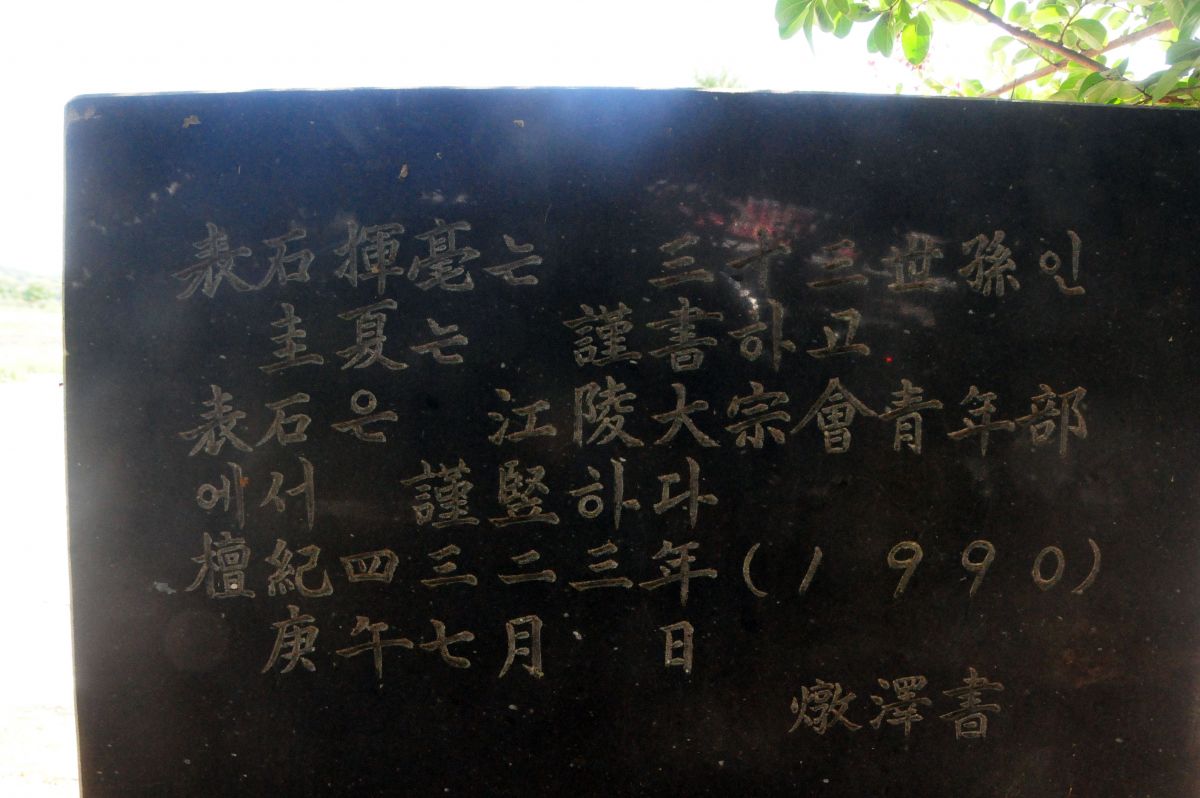 表石揮毫는 三十三世孫인
圭夏는 謹書하고
表石은 江陵大宗會靑年部
에서 謹竪하다
檀紀四三二三年(1990)
庚午七月 日
燉澤書